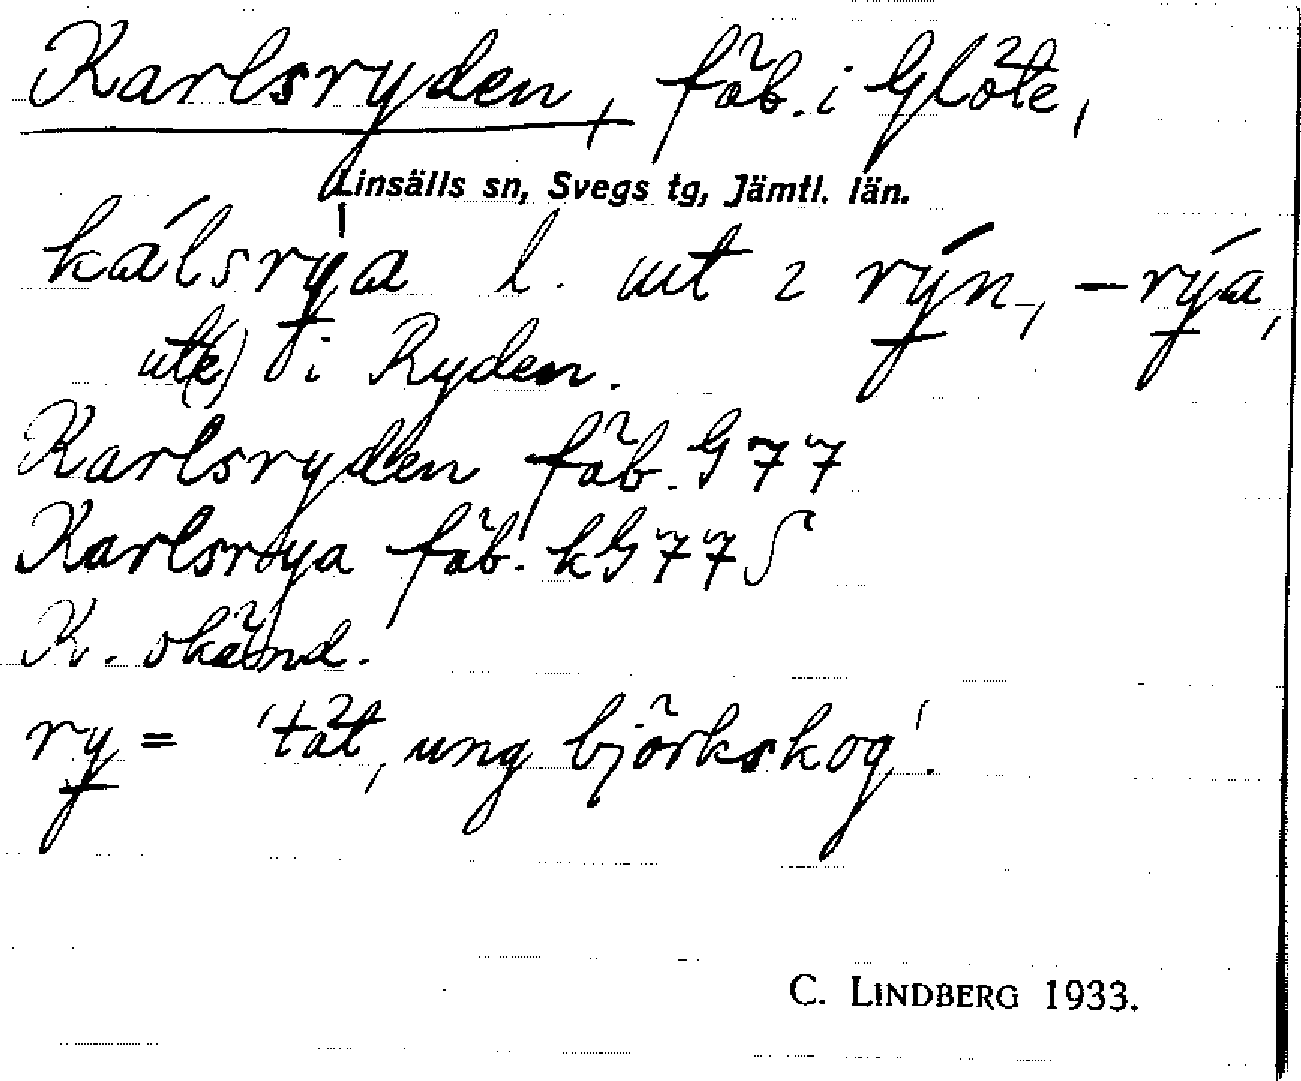 Karlsryden, fäb. i Glöte,
Linsälls sn, Svegs tg, Jämtl. län.
kálsrýa l. ut i rýn, –rýa,
ut(e) i Ryden.
Karlsryden fäb. G 77
Karlsröya fäb. kG 77
K. okänd.
ry = 'tät, ung björkskog'.
C. LINDBERG 1933.